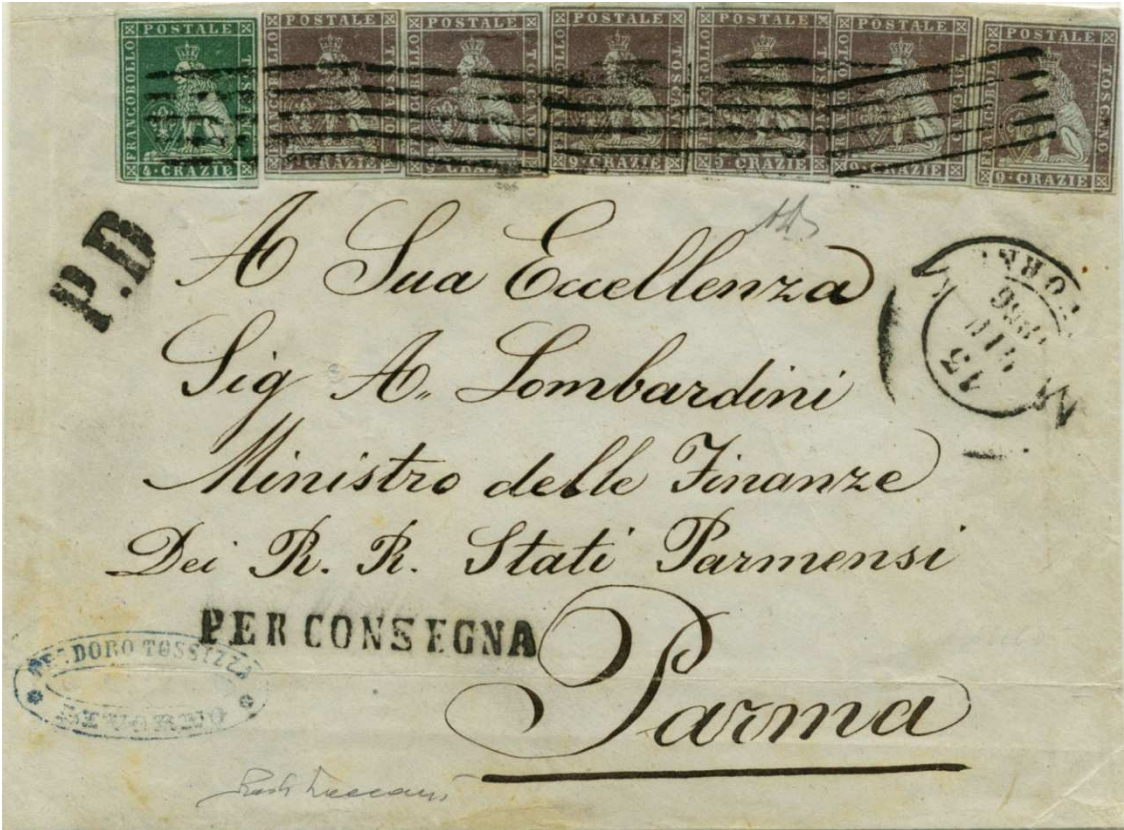 FRANCOBOLLO POSTALE TOSCANO 4·CRAZIE
FRANCOBOLLO POSTALE TOSCANO 9·CRAZIE
FRANCOBOLLO POSTALE TOSCANO 9·CRAZIE
FRANCOBOLLO POSTALE TOSCANO 9·CRAZIE
FRANCOBOLLO POSTALE TOSCANO 9·CRAZIE
FRANCOBOLLO POSTALE TOSCANO 9·CRAZIE
FRANCOBOLLO POSTALE TOSCANO 9·CRAZIE
P.D
A Sua Eccellenza
Sig A. Lombardini
Ministro delle Finanze
Dei R. R. Stati Parmensi
PER CONSEGNA
Parma
TEODORO TOSSIZZA
LIVORNO